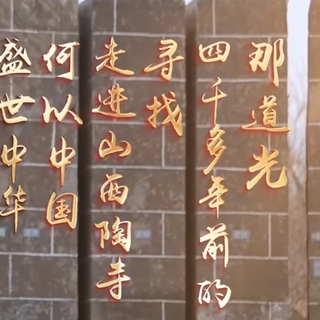 那道光
四千多年前的
寻找
走进山西陶寺
何以中国
盛世中华